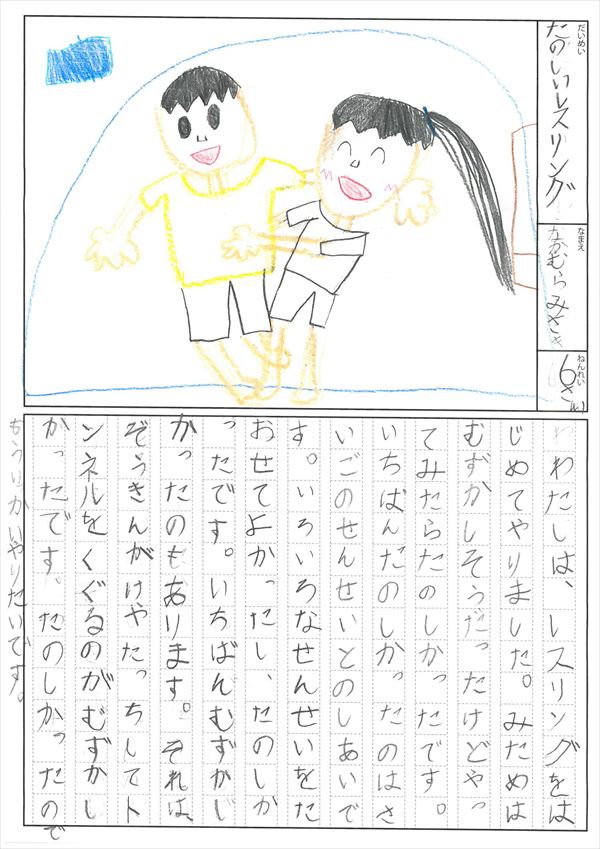 だいめい
たのしいレスリング
なまえ
なかむら みさき
ねんれい
6さい
わたしは、レスリングをは
じめてやりました。みためは
むずかしそうだったけどやっ
てみたらたのしかったです。
いちばんだのしかったのはさ
いごのせんせいとのしあいで
す。いろいろなせんせいをた
おせてよかったし、たのしか
ったです。いちばんむずかし
かったのもあります。それは、
ぞうきんがけやたっちしてト
ンネルをくぐるのがむずかし
かったです。たのしかったので
もういかいやりたいです。